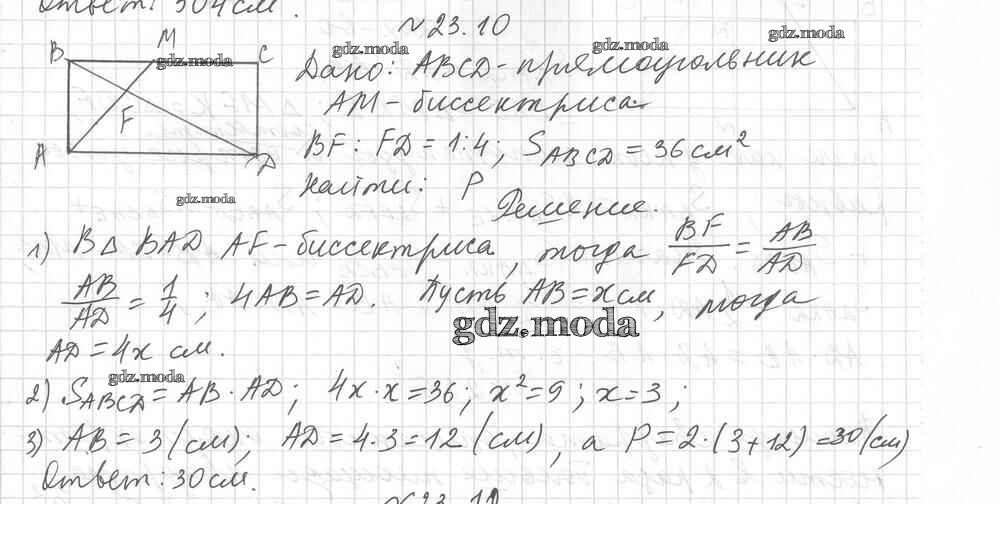 Ответ: 304 см.
№ 23.10
B M C
gdz.moda
gdz.moda
gdz.moda
Дано: ABCD - прямоугольник
AM - биссектриса
F
BF : FD = 1:4; S ABCD = 36 см²
A D
Найти: P
gdz.moda
Решение.
1) В Δ BAD AF - биссектриса, тогда BF/FD = AB/AD
AB/AD = 1/4; 4AB = AD. Пусть AB = x см, тогда
gdz.moda
AD = 4x см.
gdz.moda
2) S ABCD = AB · AD; 4x · x = 36; x² = 9; x = 3;
3) AB = 3 (см); AD = 4 · 3 = 12 (см), а P = 2 · (3 + 12) = 30 (см)
Ответ: 30 см.